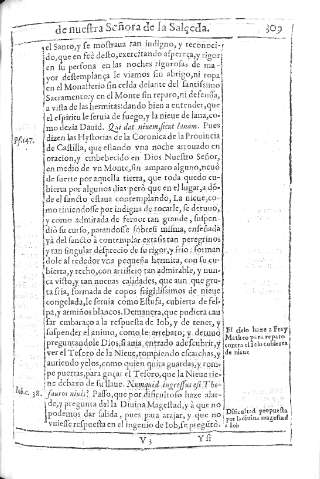 de nuestra Señora de la Salçeda. 309
el Santo, y se mostraua tan indigno, y reconoci-
do, que en fè desto, exercitando aspereça, y rigor
en su persona en las noches rigurosas de ma-
yor destemplança le viamos sin abrigo, ni ropa
en el Monasterio sin celda delante del santissimo
Sacramento: y en el Monte sin reparo, ni defensa,
a vista de las hermitas: dando bien a entender, que
el espiritu le seruia de fuego, y la nieue de lana, co-
mo dezia Dauid. Qui dat niuem, sicut lanam. Pues
dizen las Hystorias de la Coronica de la Prouincia
de Castilla, que estando vna noche arrouado en
oracion, y embebecido en Dios Nuestro Señor,
en medio de vn Monte, sin amparo alguno, neuò
de suerte por aquella tierra, que toda quedo cu-
bierta por algunos dias però que en el lugar, a dò-
de el sancto estaua contemplando, La nieue, co-
mo timiendosse por indigna de tocarle, se detuuo,
y como admirada de feruor tan grande, suspen-
diò su curso, parandosse sobresi misma, enseñada
yà del sancto à contemplar extasis tan peregrinos
y tan singular desprecio de su rigor, y frio: forman
dole al rededor vna pequeña hermita, con su cu-
bierta, y techo, con artificio tan admirable, y nun-
ca visto, y tan nueuas calidades, que aun que gru-
ta fria, formada de copos fragidissimos de nieue
congelada, le seruia como Estufa, cubierta de fel-
pa, y armiños blancos. Demanera, que pudiera cau
sar embaraço a la respuesta de Iob, y de tener, y
suspender el animo, como le arrebato, y detuuo
preguntandole Dios, si auia entrado adescubrir, y
ver el Tesoro de la Nieue, rompiendo escarchas, y
auriendo yelos, como quien quita guardas, y rom-
pe puertas, para goçar el Tesoro, que la Nieue tie-
ne debaro de su llaue. Numquid ingressus est The-
sauros niuis? Passo, que por dificultoso haze alar-
de, y pregunta del la Diuina Magestad, y à que no
podemos dar salida, pues para atajar, y que no
vuiesse respuesta en el ingenio de Iob, se pregūtò.
V 3 Y si
Psal. 147.
Iob. c. 38.
El cielo haze a Fray
para reparo
cubierta
de nieue
Dificultad propuesta
por la diuina magestad
a Iob